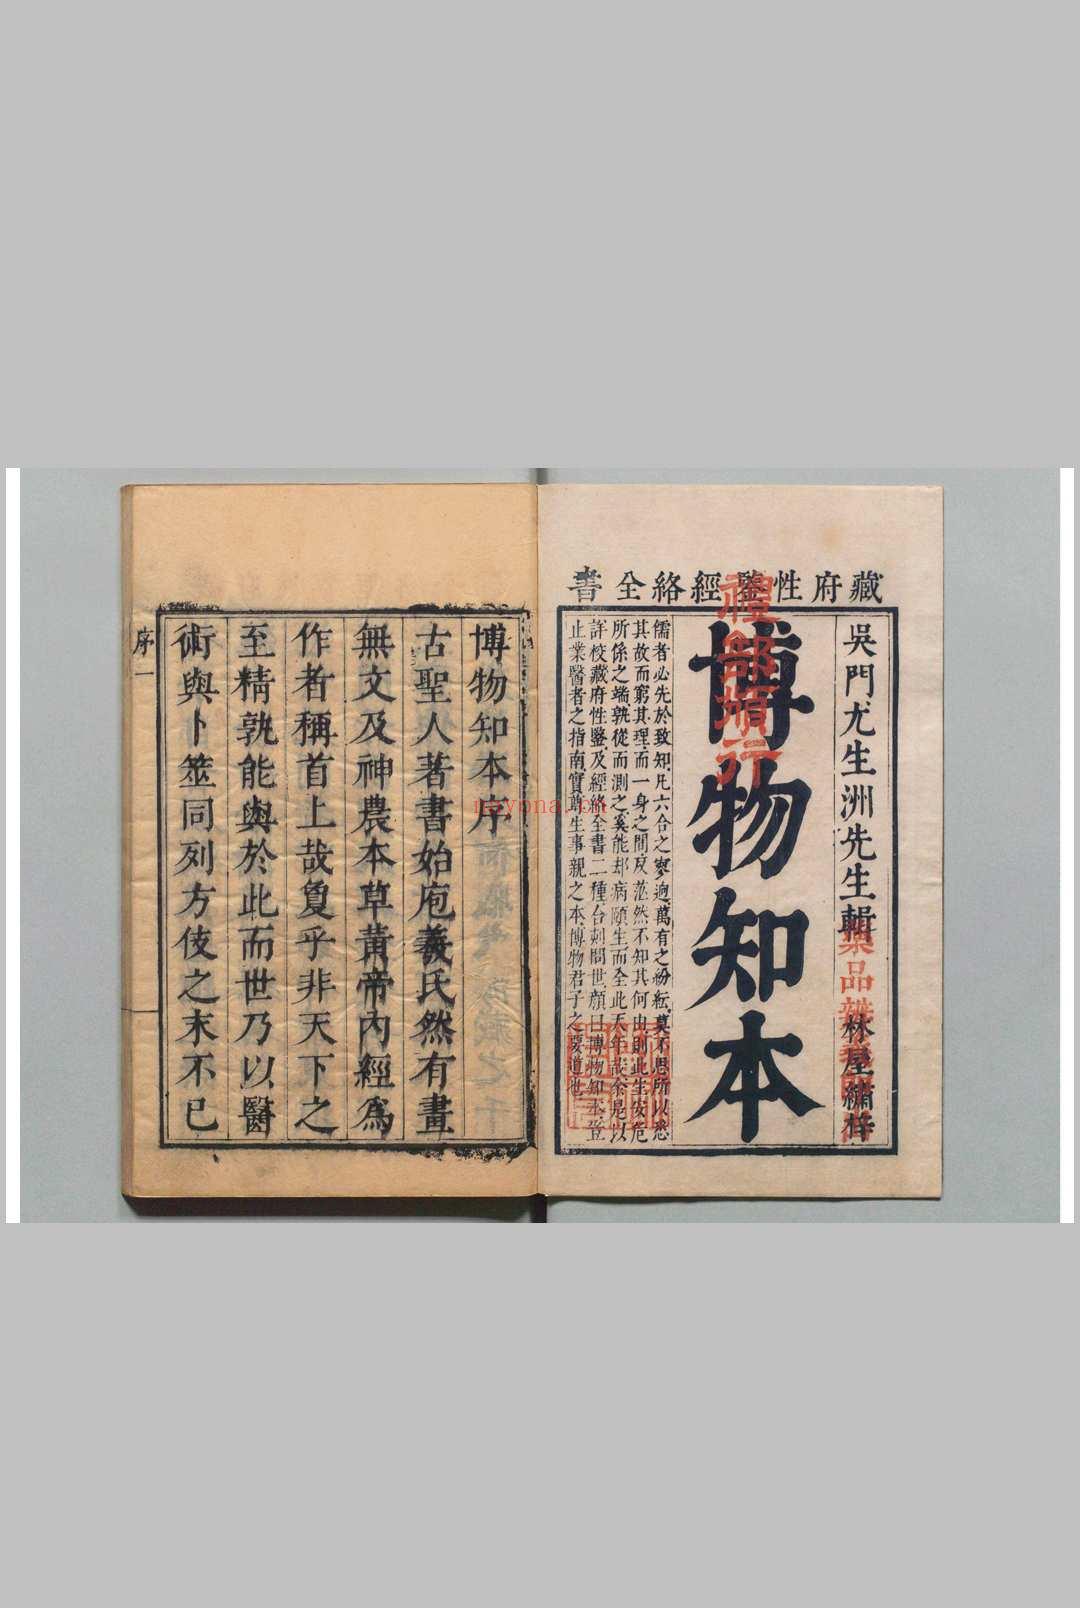 藏府性鑒經絡全書
吳門尤生洲先生輯
林屋繡梓
禮部頒行
藥品
博物知本
儒者必先於致知凡六合之寥逈萬有之紛紜莫不思所以悉
其故而窮其理而一身之間反茫然不知其何由則此生安危
所係之端孰從而測之奚能却病頤生而全此天年哉余是以
詳校藏府性鑒及經絡全書二種合刻問世顏曰博物知本登
止業醫者之指南實爲生事親之本博物君子之要道也
博物知本序
古聖人著書始庖羲氏然有畫
無文及神農本草黃帝內經爲
作者稱首上哉敻乎非天下之
至精孰能與於此而世乃以醫
術與卜筮同列方伎之末不已
序 一
nayona.cn